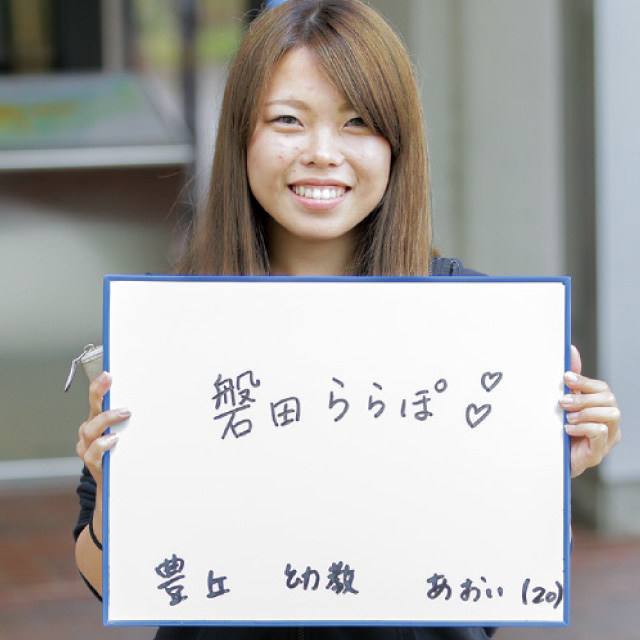 磐田ららぽ♡♡
豊丘 幼教 あおい(20)